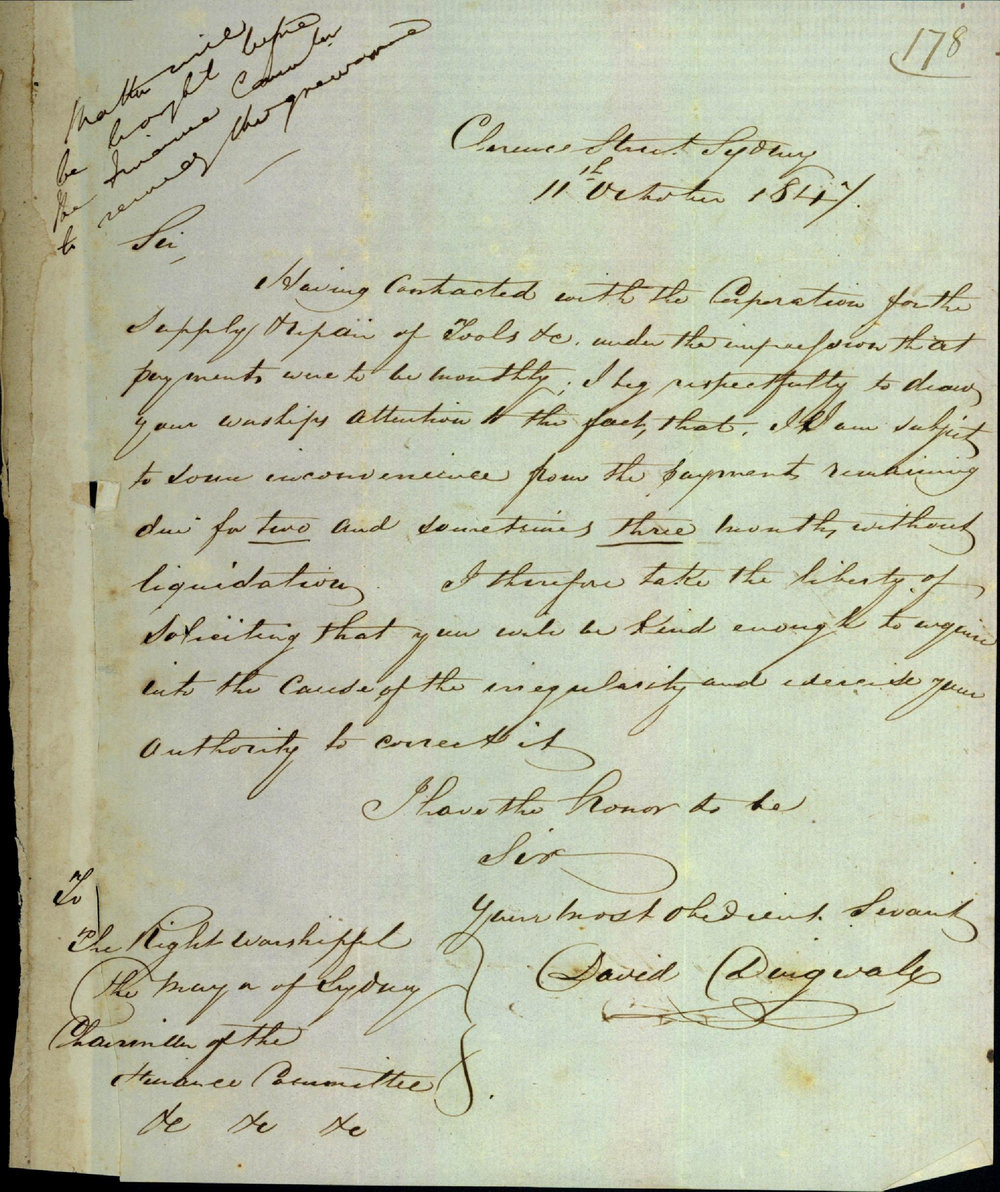 178
Matter will
be brought before
the Finance Committee
to remedy the grievance
Clarence Street Sydney
11th October 1847.
Sir,
Having Contracted with the Corporation for the
Supply & Repair of Tools &c. under the impression that
payments were to be monthly, I beg respectfully to draw
your worships attention to the fact, that, I am subject
to some inconvenience from the payments remaining
due for two and sometimes three months, without
liquidation, I therefore take the liberty of
Soliciting that you will be kind enough to inquire
into the cause of the irregularity and exercise your
authority to correct it
I have the honor to be
Sir
Your most obedient Servant
David Dingwall
To
The Right Worshipful
the Mayor of Sydney
Chairman of the
Finance Committee
&c &c &c